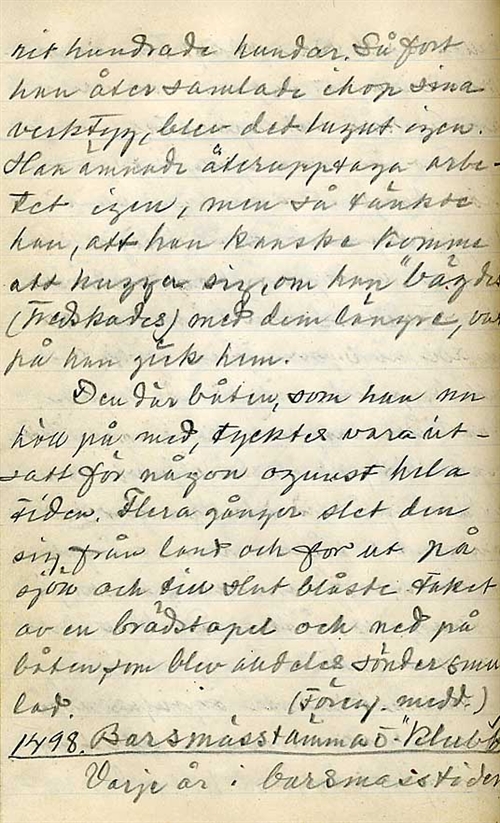 nit hundrade hundar. Så fort
han åter samlade ihop sina
verktyg, blev det lugnt igen.
Han ämnade återupptaga arbe-
tet igen, men så tänkte
han, att han kanske komme
att hugga sig, om han "bägdes
(Tredskades) med dem längre, var
på han gick hem.
Den där båten, som han nu
höll på med, tycktes vara ut-
satt för någon ogunst hela
tiden. Flera gånger slet den
sig från land och for ut på
sjön och till slut blåste taket
av en brädstapel och ned på
båten, som blev alldeles sönder smu
lad. (Föreg. medd.)
1498. Barsmässtämma o "Klubb
Varje år i barsmasstiden